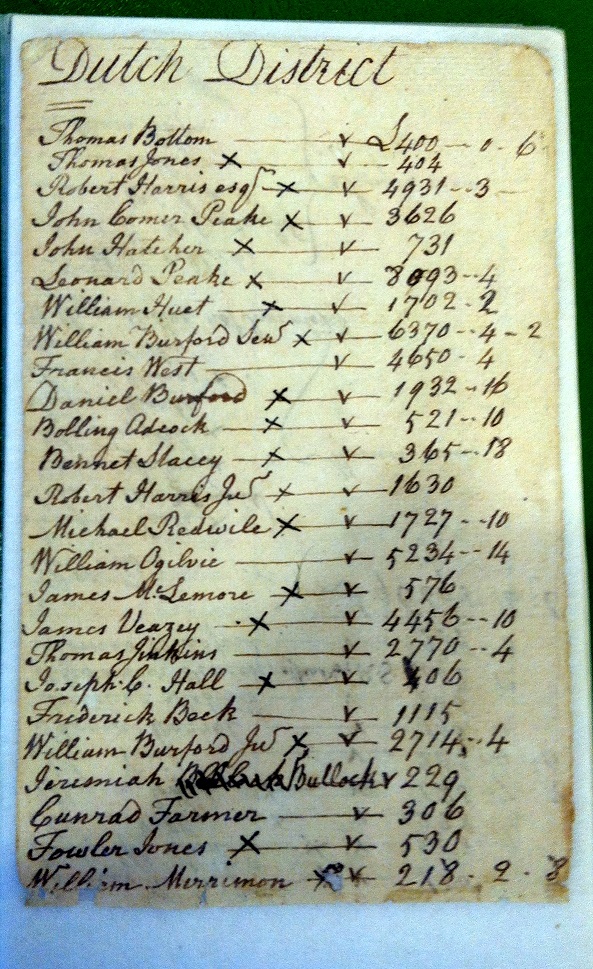 Dutch District
Thomas Bottom — v £400 - 0 - 6
Thomas Jones x — v — 404
Robert Harris esqr x — v — 4931 - 3 -
John Comer Peake x — v — 3626
John Hatcher x — v — 731
Leonard Peake x — v — 8093 - 4
William Huet — x — v — 1702 - 2
William Burford Senr x — v — 6370 - 4 - 2
Francis West — v — 4650 - 4
Daniel Burford x — v — 1932 - 16
Bolling Adcock — x — v — 521 - 10
Bennet Stacey — x — v — 365 - 18
Robert Harris Jur x — v — 1630
Michael Redwile x — v — 1727 - 10
William Ogilvie — v — 5234 - 14
James McLemore x — v — 576
James Veazey - x — v — 4456 - 10
Thomas Jinkins — v — 2770 - 4
Joseph C. Hall x — v — 406
Friderick Beck — v — 1115
William Burford Jur x — v — 2714 - 4
Jeremiah Bullock v 229
Cunrad Farmer — v — 306
Fowler Jones x — v — 530
William Merrimon x v — 218 - 2 - 8